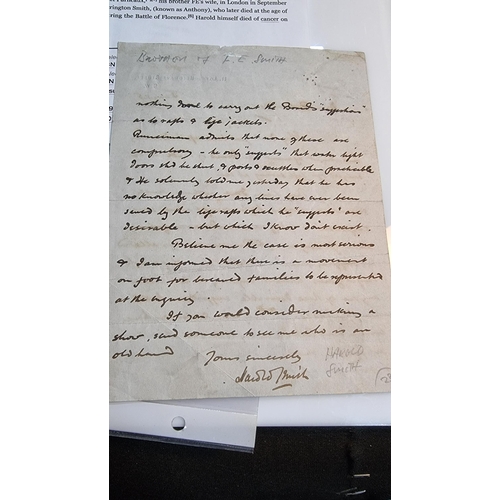 his brother FE's wife, in London in September
rington Smith, (known as Anthony), who later died at the age of
ring the Battle of Florence.[6] Harold himself died of cancer on
BROTHER of F E SMITH
nothing done to carry out the Board's suggestions
as to rafts & life jackets.
Runciman admits that none of these are
compulsory - he only "suggests" that water tight
doors shd be shut, & ports & scuttles when practicable
& He solemnly told me yesterday that he has
no knowledge whether any lives have ever been
saved by the life rafts which he "suggests" are
desirable - but which I know don't exist.
Believe me the case is most serious
& I am informed that there is a movement
on foot for bereaved families to be represented
at the enquiry.
If you would consider making a
show, send someone to see me who is an
old hand
Yours sincerely
Harold Smith
HAROLD
SMITH